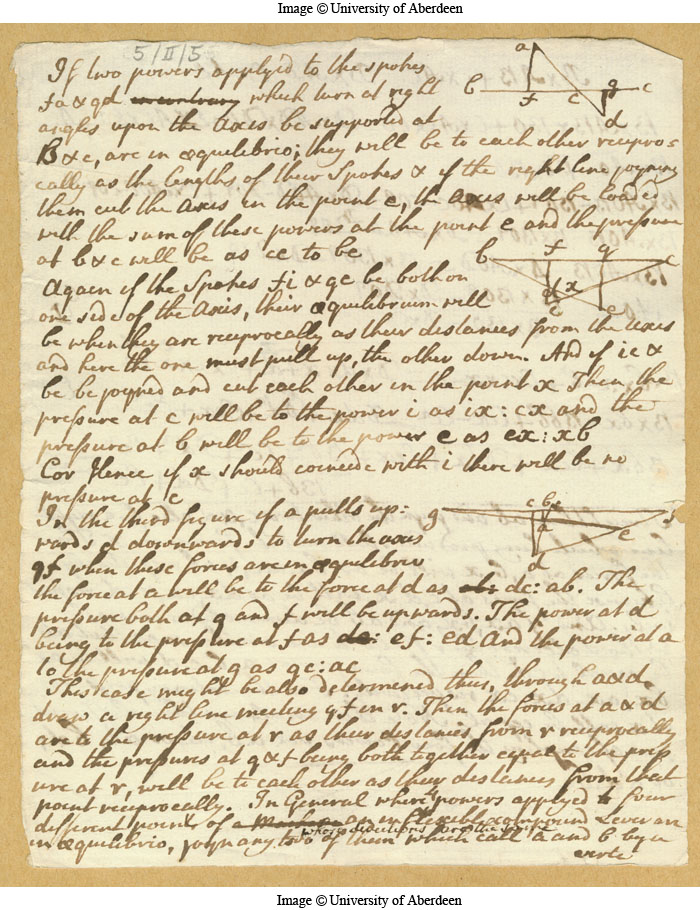 Image © University of Aberdeen
5/II/5
If two powers applyed to the spokes
fa & gd in contrary which turn at right
angles upon the axis be supported at
B & c, are in æquilibrio; they will be to each other recipro=
cally as the lengths of their Spokes & if the right line joyning
them cut the axis in the point e, the axis will be loaded
with the sum of these powers at the point e and the pressure
at b & c will be as ce to be
a
b f e g c
d
Again if the Spokes fi & ge be both on
one side of the axis, their æquilibrium will
be when they are reciprocally as their distances from the axis
and here the one must pull up, the other down. And if ic &
be be joyned and cut each other in the point x Then the
pressure at c will be to the power i as ix : cx and the
pressure at b will be to the power e as ex : xb
Cor Hence if x should coincide with i there will be no
pressure at c
b f g c
x
i e
In the third figure if a pulls up=
wards d downwards to turn the axis
gf when these forces are in æquilibrio
the force at a will be to the force at d as dc : ab. The
pressure both at g and f will be upwards. The power at d
being to the pressure at f as ef : ed and the power at a
to the pressure at g as ge : ae
g c b f
a e
d
This case might be also determened thus, through a & d
draw a right line meeting gf in r. Then the forces at a & d
are to the pressure at r as their distances from r reciprocally
and the pressures at g & f being both together equal to the press
ure at r, will be to each other as their distances from that
point reciprocally. In General when powers applyed to four
different points of an inflexible compound Lever are
whose directions are the same
in æquilibrio, joyn any two of them which call a and b by a
verte
Image © University of Aberdeen